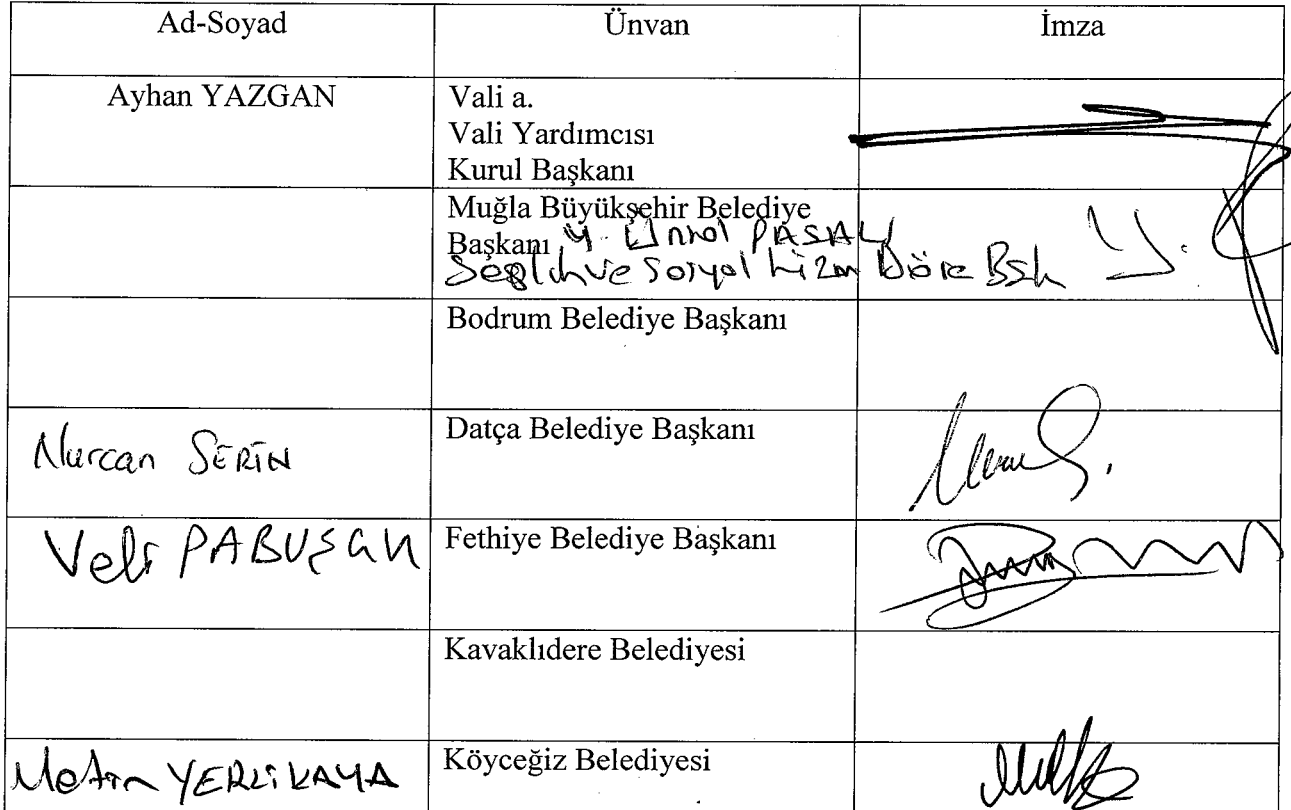 Ad-Soyad Ünvan İmza
Ayhan YAZGAN Vali a.
Vali Yardımcısı
Kurul Başkanı
Muğla Büyükşehir Belediye
Başkanı Y. Ünal PAŞALI
Sağlık ve Sosyal Hizm Daire Bşk
Bodrum Belediye Başkanı
Nurcan SERİN Datça Belediye Başkanı
Veli PABUŞÇU Fethiye Belediye Başkanı
Kavaklıdere Belediyesi
Metin YERLİKAYA Köyceğiz Belediyesi